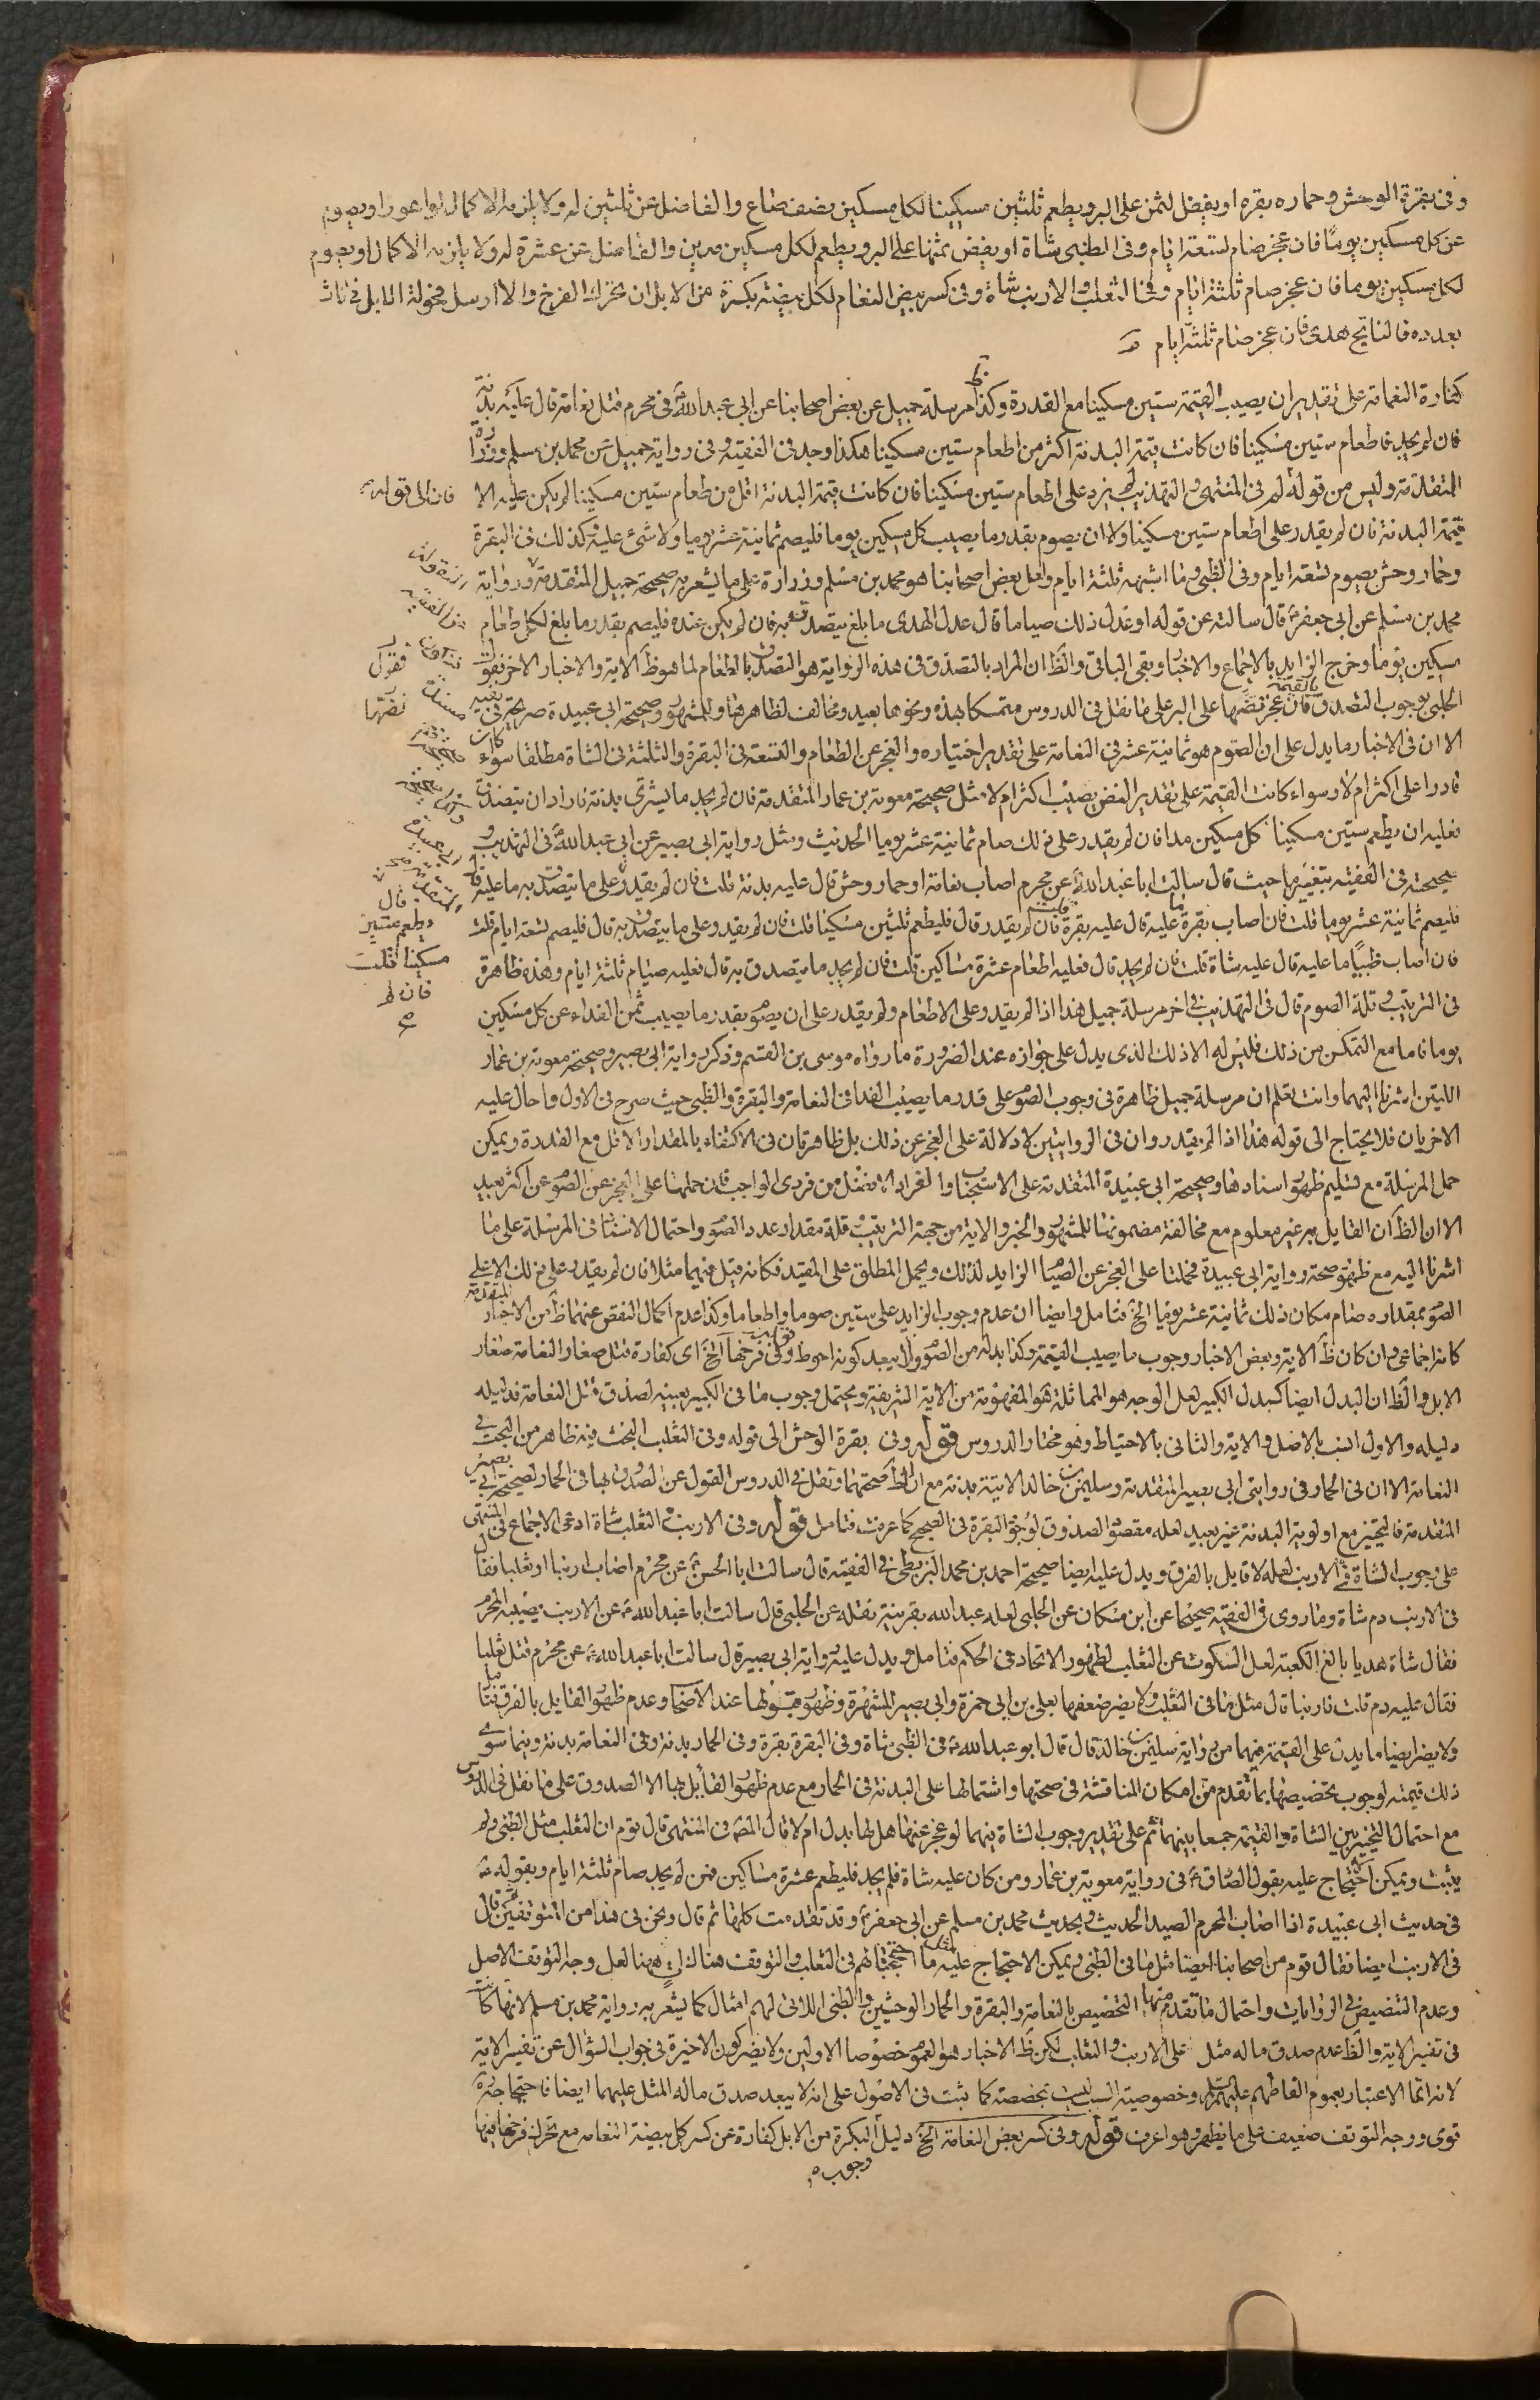 وفى بقرة الوحش وحماره بقره او يفض الثمن على البر ويطعم ثلثين مسكينا لكل مسكين نصف صاع والفاضل عن ثلثين له ولا يلزمه الاكمال لو اعوز او يصوم
عن كل مسكين يوما فان عجز صام تسعة ايام وفى الظبى شاة او يفض ثمنها على البر ويطعم لكل مسكين مدين والفاضل عن عشرة له ولا يلزمه الاكمال او يصوم
لكل مسكين يوما فان عجز صام ثلثة ايام وفى الثعلب والارنب شاة وفى كسر بيض النعام لكل بيضة بكرة من الابل ان تحرك الفرخ والا ارسل فحولة الابل فى اناث
بعدده فالناتج هدى فان عجز صام ثلثة ايام
كفارة النعامة على تقدير ان يصيب القيمة ستين مسكينا مع القدرة وكذا مرسلة جميل عن بعض اصحابنا عن ابى عبد الله ع فى محرم قتل نعامة قال عليه بدنة
فان لم يجد فاطعام ستين مسكينا فان كانت قيمة البدنة اكثر من اطعام ستين مسكينا هكذا وجد فى الفقيه وفى رواية جميل عن محمد بن مسلم وزرارة
المتقدمة وليس من قوله لم فى المنتهى والتهذيب لم يزد على اطعام ستين مسكينا فان كانت قيمة البدنة اقل من طعام ستين مسكينا لم يكن عليه الا
قيمة البدنة فان لم يقدر على اطعام ستين مسكينا ولا ان يصوم بقدر ما يصيب كل مسكين يوما فليصم ثمانية عشر يوما ولا شئ عليه وكذلك فى البقرة
وحمار وحش يصوم تسعة ايام وفى الظبى وما اشبهه ثلثة ايام ولعل بعض اصحابنا هو محمد بن مسلم وزرارة على ما يشعر به صحيحة جميل المتقدمة ورواية
محمد بن مسلم عن ابى جعفر ع قال سالته عن قوله او عدل ذلك صياما قال عدل الهدى ما بلغ يتصدق به فان لم يكن عنده فليصم بقدر ما بلغ لكل طعام
مسكين يوما وخرج الزايد بالاجماع والاخبار وبقى الباقى والظ ان المراد بالتصدق فى هذه الرواية هو التصدق بالطعام لما هو ظ الاية والاخبار الاخر فقول
الحلبى بوجوب التصدق بالقيمة فان عجز فضها على البر على ما نقل فى الدروس متمسكا بهذه ونحوها بعيد ومخالف لظاهرها وللمشهور وصحيحة ابى عبيدة صريحة فى نفيه
الا ان فى الاخبار ما يدل على ان الصوم هو ثمانية عشر فى النعامة على تقدير اختياره والعجز عن الطعام والتسعة فى البقرة والثلثة فى الشاة مطلقا سواء كان
قادرا على اكثر ام لا وسواء كانت القيمة على تقدير الفض يصيب اكثر ام لا مثل صحيحة معوية بن عمار المتقدمة فان لم يجد ما يشترى بدنة فاراد ان يتصدق
فعليه ان يطعم ستين مسكينا كل مسكين مدا فان لم يقدر على ذلك صام ثمانية عشر يوما الحديث ومثل رواية ابى بصير عن ابى عبد الله ع فى التهذيب و
صحيحته فى الفقيه بتغيير ما حيث قال سالت ابا عبد الله ع عن محرم اصاب نعامة او حمار وحش قال عليه بدنة قلت فان لم يقدر على ما يتصدق به ما عليه قال
فليصم ثمانية عشر يوما قلت فان اصاب بقرة ما عليه قال عليه بقرة قلت فان لم يقدر قال فليطعم ثلثين مسكينا قلت فان لم يقدر على ما يتصدق به قال فليصم تسعة ايام قلت
فان اصاب ظبيا ما عليه قال عليه شاة قلت فان لم يجد قال فعليه اطعام عشرة مساكين قلت فان لم يجد ما يتصدق به قال فعليه صيام ثلثة ايام وهذه ظاهرة
فى الترتيب وقلة الصوم قال فى التهذيب فى اخر مرسلة جميل هذا اذا لم يقدر على الاطعام ولم يقدر على ان يصوم بقدر ما يصيب ثمن الفداء عن كل مسكين
يوما فاما مع التمكن من ذلك فليس له الا ذلك الذى يدل على جوازه عند الضرورة ما رواه موسى بن القسم وذكر رواية ابى بصير وصحيحة معوية بن عمار
اللتين اشرنا اليهما وانت تعلم ان مرسلة جميل ظاهرة فى وجوب الصوم على قدر ما يصيب الفداء فى النعامة والبقرة والظبى حيث صرح فى الاول واحال عليه
الاخريان فلا يحتاج الى قوله هذا اذا لم يقدر وان فى الروايتين لا دلالة على العجز عن ذلك بل ظاهرتان فى الاكتفاء بالمقدار الاقل مع القدرة ويمكن
حمل المرسلة مع تسليم ظهور اسنادها وصحيحة ابى عبيدة المتقدمة على الاستحباب او الفرد الافضل من فردى الواجب فان حملهما على العجز عن الصوم عن اكثر بعيد
الا ان الظ ان القايل به غير معلوم مع مخالفة مضمونها للمشهور والخبر والاية من جهة الترتيب وقلة مقدار عدد الصوم واحتمال الاستثنا فى المرسلة على ما
اشرنا اليه مع ظهور صحة رواية ابى عبيدة فحملتا على العجز عن الصيام الزايد لذلك ويحمل المطلق على المقيد فكانه قيل فيهما مثلا فان لم يقدر على ذلك الاعلى
الصوم بمقداره صام مكان ذلك ثمانية عشر يوما الخ فتامل وايضا ان عدم وجوب الزايد على ستين صوما واطعاما وكذا عدم اكمال النقص عنهما ظ من الاخبار المتقدمة
كانه اجماعى وان كان ظ الاية وبعض الاخبار وجوب ما يصيب القيمة وكذا بدله من الصوم ولا يبعد كونه احوط قوله وفى فرخها الخ اى كفارة قتل صغار النعامة صغار
الابل والظ ان البدل ايضا كبدل الكبير لعل الوجه هو المماثلة هو المفهومة من الاية الشريفة ويحتمل وجوب ما فى الكبير بعينه لصدق قتل النعامة فدليله
دليله والاول انسب بالاصل والاية والثانى بالاحتياط وهو مختار الدروس قوله وفى بقرة الوحش الى قوله وفى الثعلب البحث فيه ظاهر من البحث فى
النعامة الا ان فى الحمار فى روايتى ابى بصير المتقدمة وسليمن بن خالد الاتية بدنة مع ان الظ صحتهما ونقل فى الدروس القول عن الصدوق بها فى الحمار لصحيحة ابى بصير
المتقدمة فالتخيير مع اولوية البدنة غير بعيد لعله مقصود الصدوق لوجود البقرة فى الصحيح كما عرفت فتامل قوله وفى الارنب والثعلب شاة ادعى الاجماع فى المنتهى
على وجوب الشاة فى الارنب لعله لا قايل بالفرق ويدل عليه ايضا صحيحة احمد بن محمد البزنطى فى الفقيه قال سالت ابا الحسن ع عن محرم اصاب ارنبا او ثعلبا فقال
فى الارنب دم شاة وما روى فى الفقيه صحيحا عن ابن مسكان عن الحلبى لعله عبد الله بقرينة نقله عن الحلبى قال سالت ابا عبد الله ع عن الارنب يصيبه المحرم
فقال شاة هديا بالغ الكعبة لعل السكوت عن الثعلب لظهور الاتحاد فى الحكم فتامل ويدل عليه رواية ابى بصير قال سالت ابا عبد الله ع عن محرم قتل ثعلبا
فقال عليه دم قلت فارنبا قال مثل ما فى الثعلب ولا يضر ضعفها بعلى بن ابى حمزة وابى بصير للشهرة وظهور قبولها عند الاصحاب وعدم ظهور القايل بالفرق فتامل
ولا يضر ايضا ما يدل على القيمة فيهما من رواية سليمن بن خالد قال قال ابو عبد الله ع فى الظبى شاة وفى البقرة بقرة وفى الحمار بدنة وفى النعامة بدنة وفيما سوى
ذلك قيمته لوجوب تخصيصها بما تقدم من امكان المناقشة فى صحتها واشتمالها على البدنة فى الحمار مع عدم ظهور القايل بها الا الصدوق على ما نقل فى الدروس
مع احتمال التخيير بين الشاة والقيمة جمعا بينهما ثم على تقدير وجوب الشاة فيهما لو عجز عنها هل لها بدل ام لا قال المص فى المنتهى قال قوم ان الثعلب مثل الظبى ولم
يثبت ويمكن احتجاج عليه بقول الصادق ع فى رواية معوية بن عمار ومن كان عليه شاة فلم يجد فليطعم عشرة مساكين فمن لم يجد صام ثلثة ايام وبقوله ع
فى حديث ابى عبيدة اذا اصاب المحرم الصيد الحديث وبحديث محمد بن مسلم عن ابى جعفر ع وقد تقدمت كلها ثم قال ونحن فى هذا من المتوقفين ثم قال
فى الارنب ايضا فقال قوم من اصحابنا ايضا مثل ما فى الظبى ويمكن الاحتجاج عليه بمثل ما احتججنا لهم فى الثعلب والتوقف هناك ات ههنا لعل وجه التوقف الاصل
وعدم التنصيص فى الروايات واحتمال ما تقدم منها التخصيص بالنعامة والبقرة والحمار الوحشيين والظبى اللاتى لهم امثال كما يشعر به رواية محمد بن مسلم لانها كانت
فى تفسير الاية والظ عدم صدق ما له مثل على الارنب والثعلب لكن ظ الاخبار هو العموم خصوصا الاولين ولا يضر كون الاخيرة فى جواب السؤال عن تفسير الاية
لانه انما الاعتبار بعموم الفاظهم عليهم السلم وخصوصية السبب ليست بمخصصة كما ثبت فى الاصول على انه لا يبعد صدق ما له المثل عليهما ايضا فاحتجاجه ره
قوى ووجه التوقف ضعيف على ما يظهر وهو اعرف قوله وفى كسر بعض النعامة الخ دليل البكرة من الابل كفارة عن كسر كل بيضة النعامة مع تحرك فرخها فيها
وجوب م
فان الى قوله
فقرك
نضرتها
قال
ويطعم عشرين
مسكينا قلت
فان لم